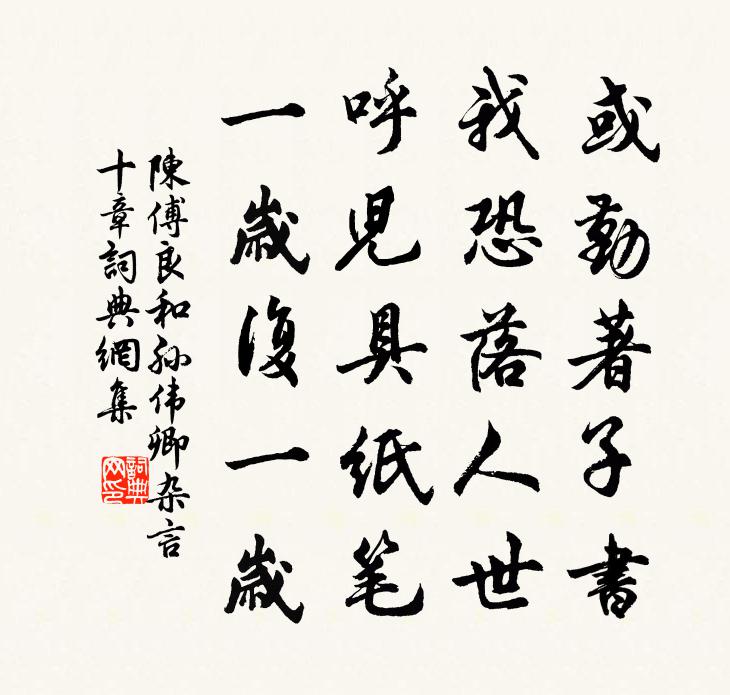 或勤著子書
我恐落人世
呼児具紙笔
一歲復一歲
陳傅良和孙伟卿杂言
十章詞典網集
詞典
网印